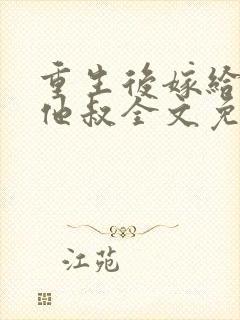 重生後嫁給
他叔全文免
江苑